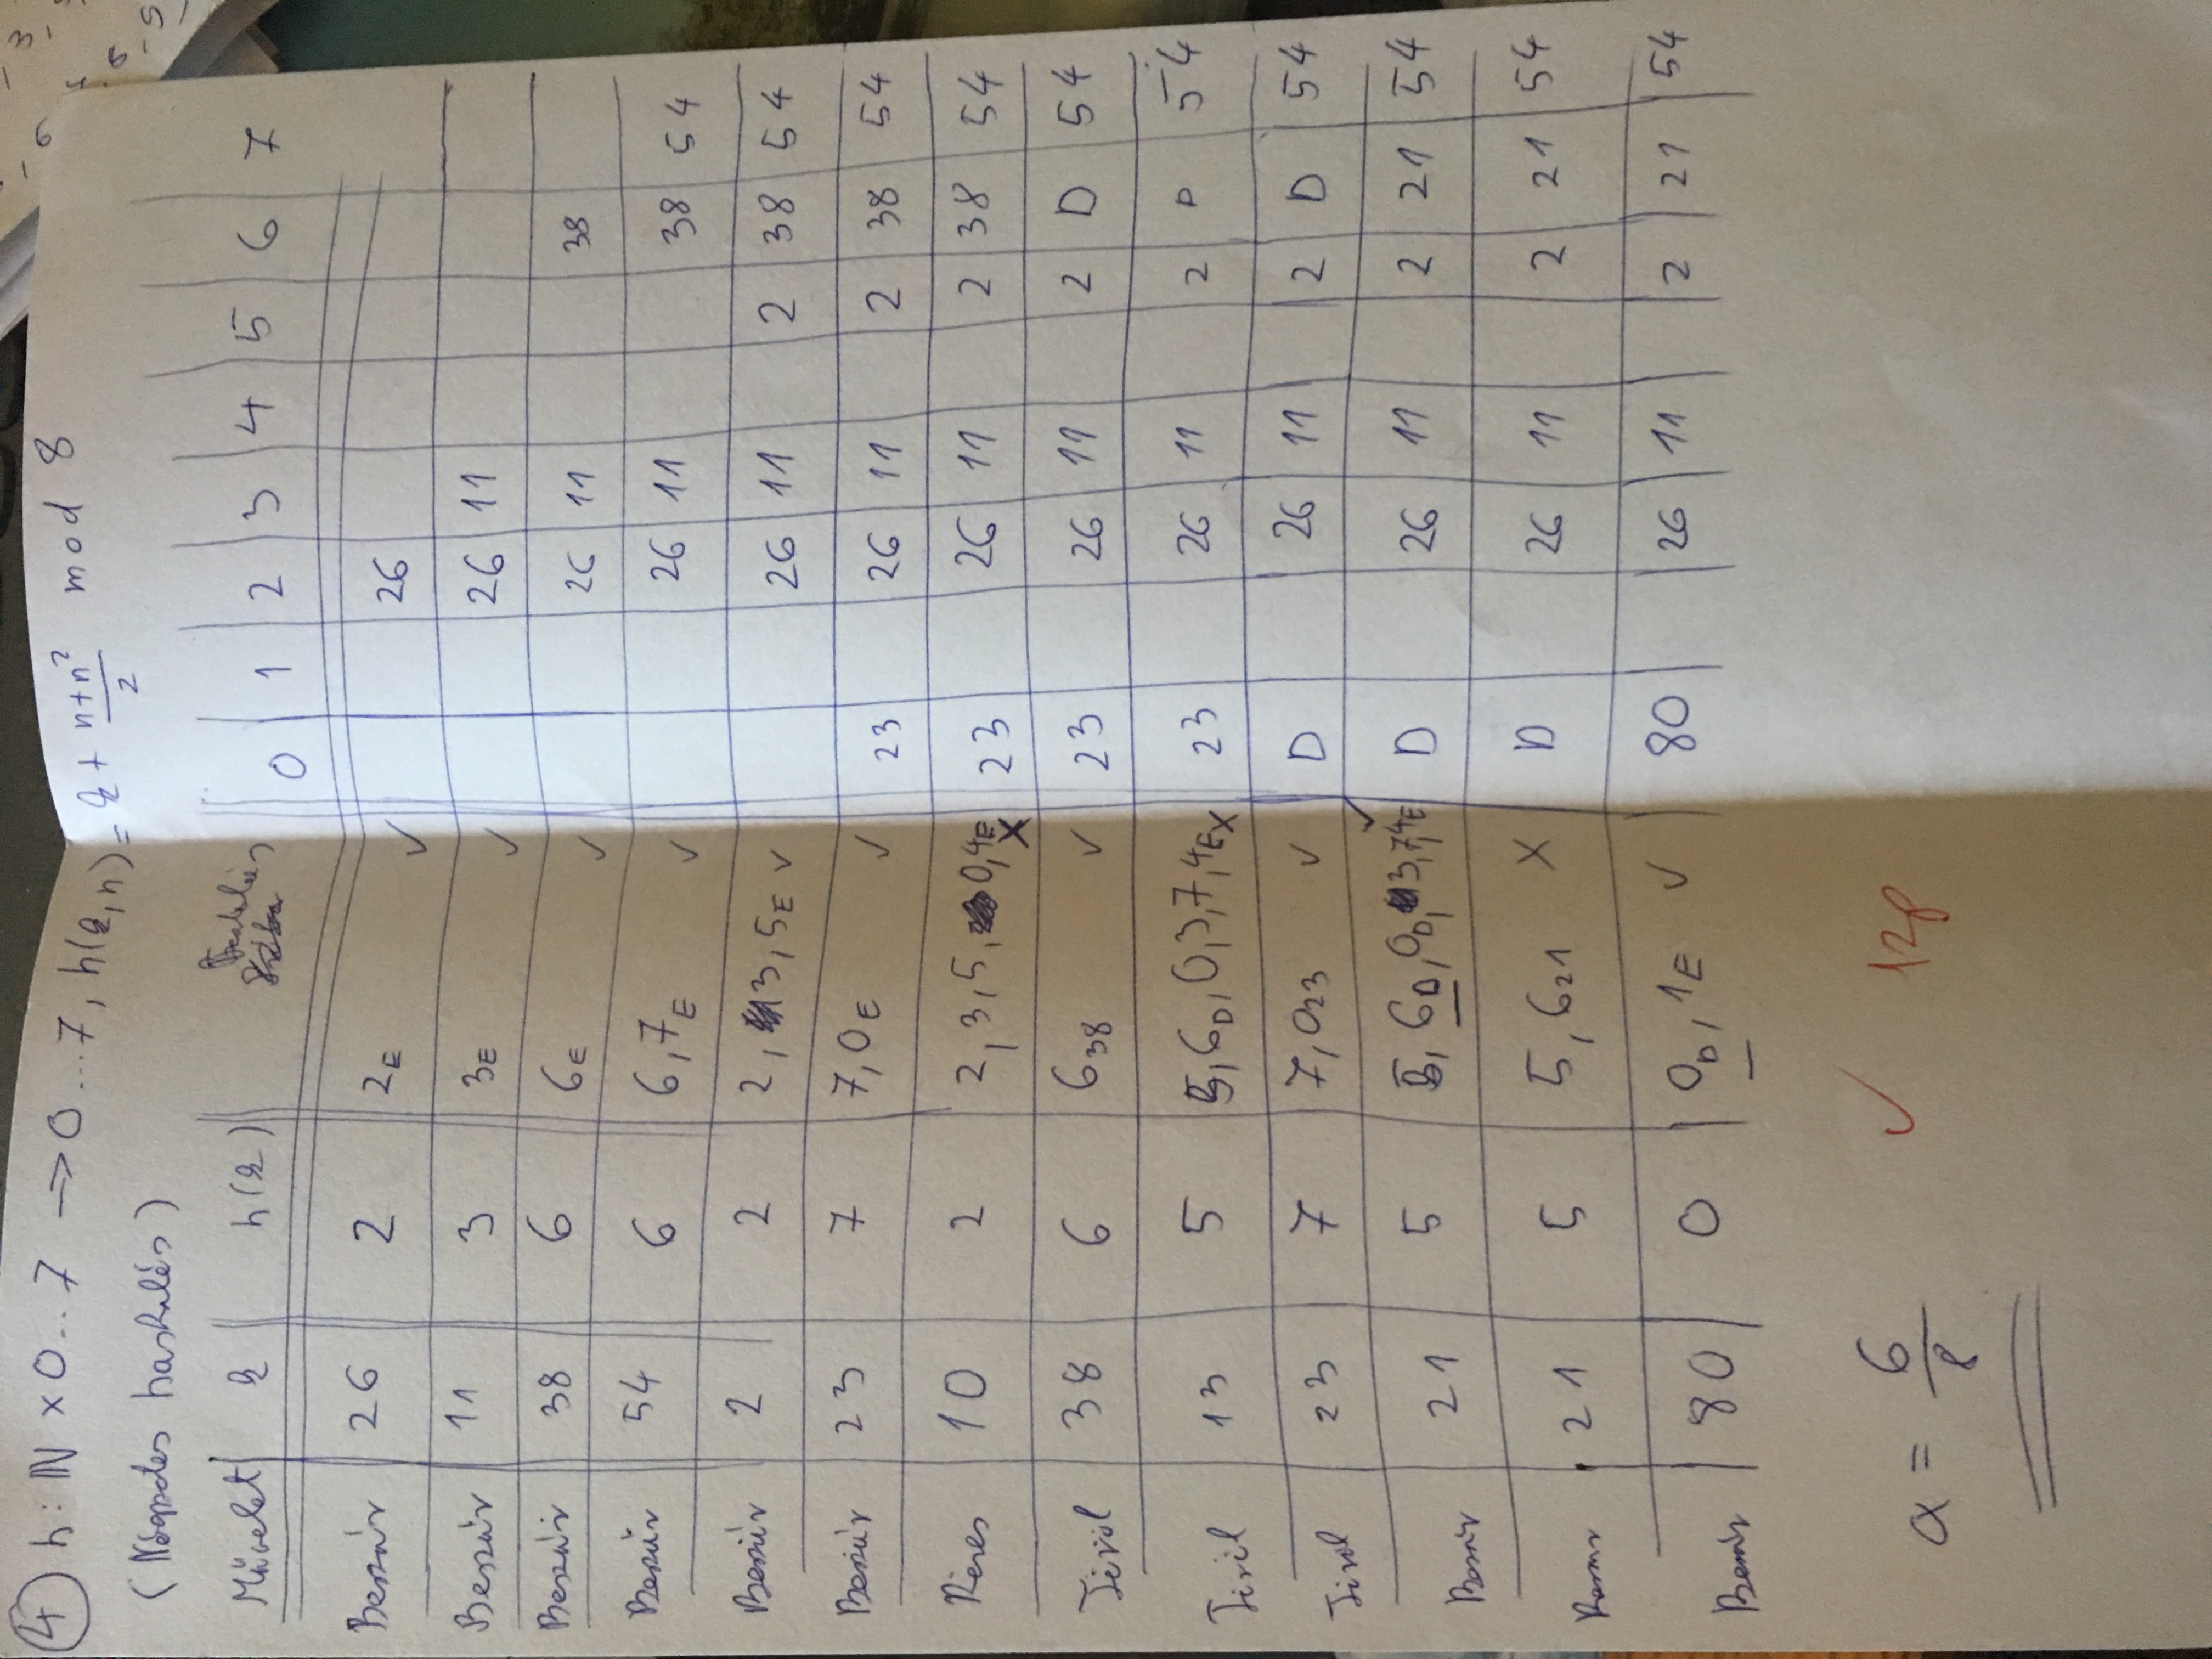 4 h: ℕ × 0..7 → 0...7, h(k,n) = k + (n+n²)/2 mod 8
(Négyzetes hashelés)
Művelet k h(k) 0 1 2 3 4 5 6 7
Beszúr 26 2 2E ✓ 26
Beszúr 11 3 3E ✓ 26 11
Beszúr 38 6 6E ✓ 26 11 38
Beszúr 54 6 6,7E ✓ 26 11 38 54
Beszúr 2 2 2, 3, 5E ✓ 26 11 2 38 54
Beszúr 23 7 7,0E ✓ 23 26 11 2 38 54
Keres 10 2 2,3,5, 0,4E X 23 26 11 2 38 54
Töröl 38 6 6 38 ✓ 23 26 11 2 D 54
Töröl 13 5 5,6D,0,3,7,4E X 23 26 11 2 D 54
Töröl 23 7 7,0 23 ✓ D 26 11 2 D 54
Beszúr 21 5 5, 6D, 0D, 3,7,4E ✓ D 26 11 2 21 54
Beszúr 21 5 5, 6 21 X D 26 11 2 21 54
Beszúr 80 0 0D, 1E ✓ 80 26 11 2 21 54
α = 6/8 ✓ 12p